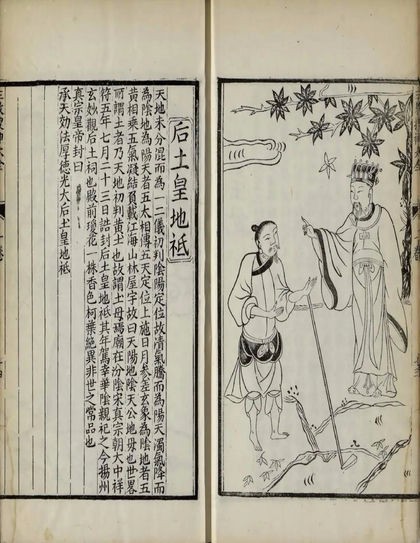 后土皇地祇
天地未分混而為一二儀初判陰陽定位故清氣騰而為陽天濁氣降而
為陰地為陽天者五太相傳五天定位上施日月參差玄象為陰地者五
黃相乘五氣凝結負載江海山林屋宇故曰天陽地陰天公地母也世畧
所謂土者乃天地初判黃土也故謂土母焉廟在汾陰宋真宗朝大中祥
符五年七月二十三日誥封后土皇地祇其年駕幸華陰親祀之今揚州
玄妙觀后土祠也殿前瓊花一株香色柯葉絶異非世之常品也
真宗皇帝封曰
承天効法厚德光大后土皇地祇